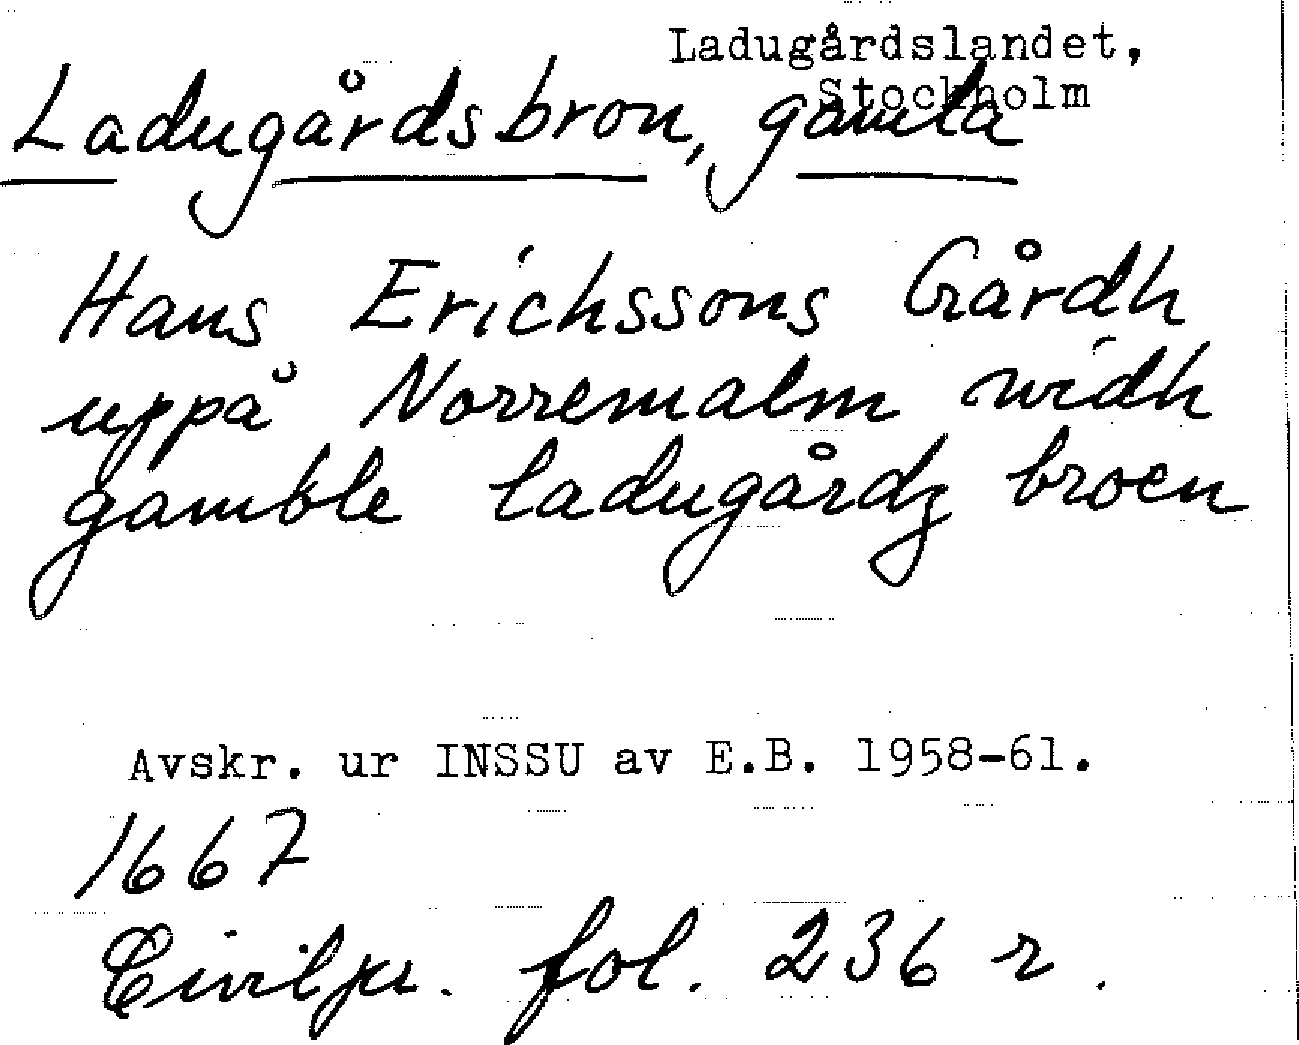 Ladugårdslandet,
Stockholm
Ladugårdsbron, gamla
Hans Erichssons Gårdh
uppå Norremalm widh
gamble ladugårdz broen
Avskr. ur INSSU av E.B. 1958-61.
1667
Civilju. fol. 236 r.